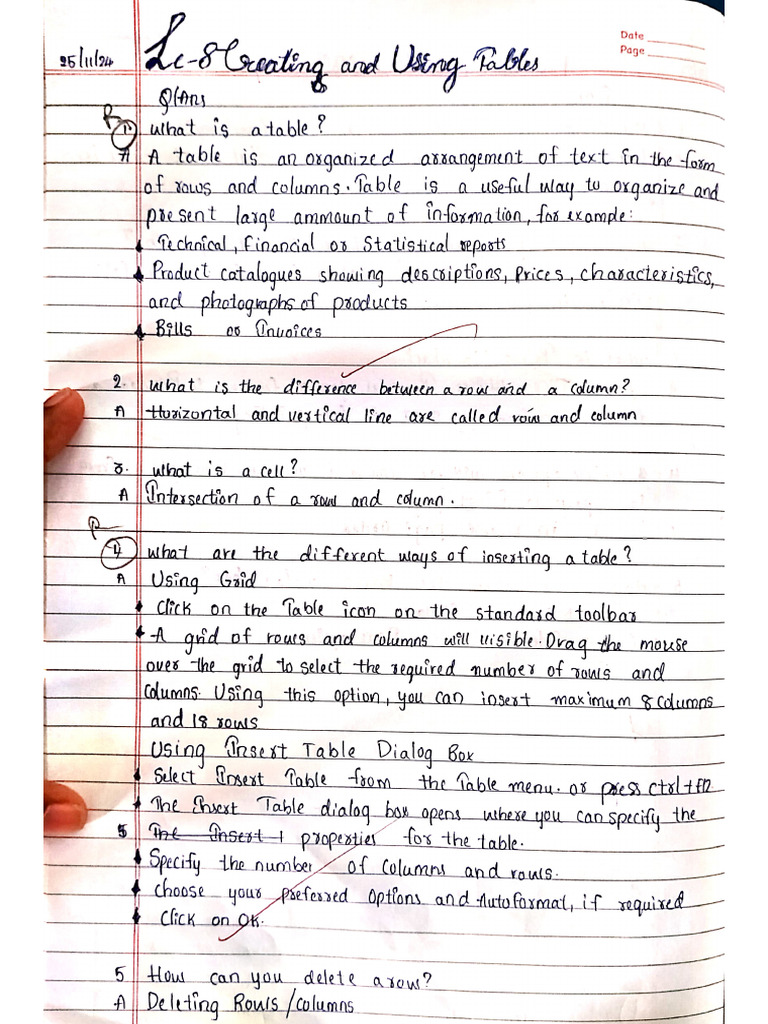 Date
Page
25/11/24 Lc-8 Creating and Using Tables
Q/Ans
R
1. What is a table?
A A table is an organized arrangement of text in the form
of rows and columns. Table is a useful way to organize and
present large ammount of information, for example:
Technical, Financial or Statistical reports
Product catalogues showing descriptions, Prices, characteristics,
and photographs of products
Bills or Invoices
2. What is the difference between a row and a column?
A Horizontal and vertical line are called row and column
3. What is a cell?
A Intersection of a row and column.
R
4 What are the different ways of inserting a table?
A Using Grid
Click on the Table icon on the standard toolbar
A grid of rows and columns will visible. Drag the mouse
over the grid to select the required number of rows and
columns. Using this option, you can insert maximum 8 columns
and 18 rows
Using Insert Table Dialog Box
Select Insert Table from the Table menu. or press ctrl+f12
The Insert Table dialog box opens where you can specify the
5 The Insert properties for the table.
Specify the number of columns and rows.
Choose your preferred options and Autoformat, if required
Click on OK.
5 How can you delete a row?
A Deleting Rows/columns